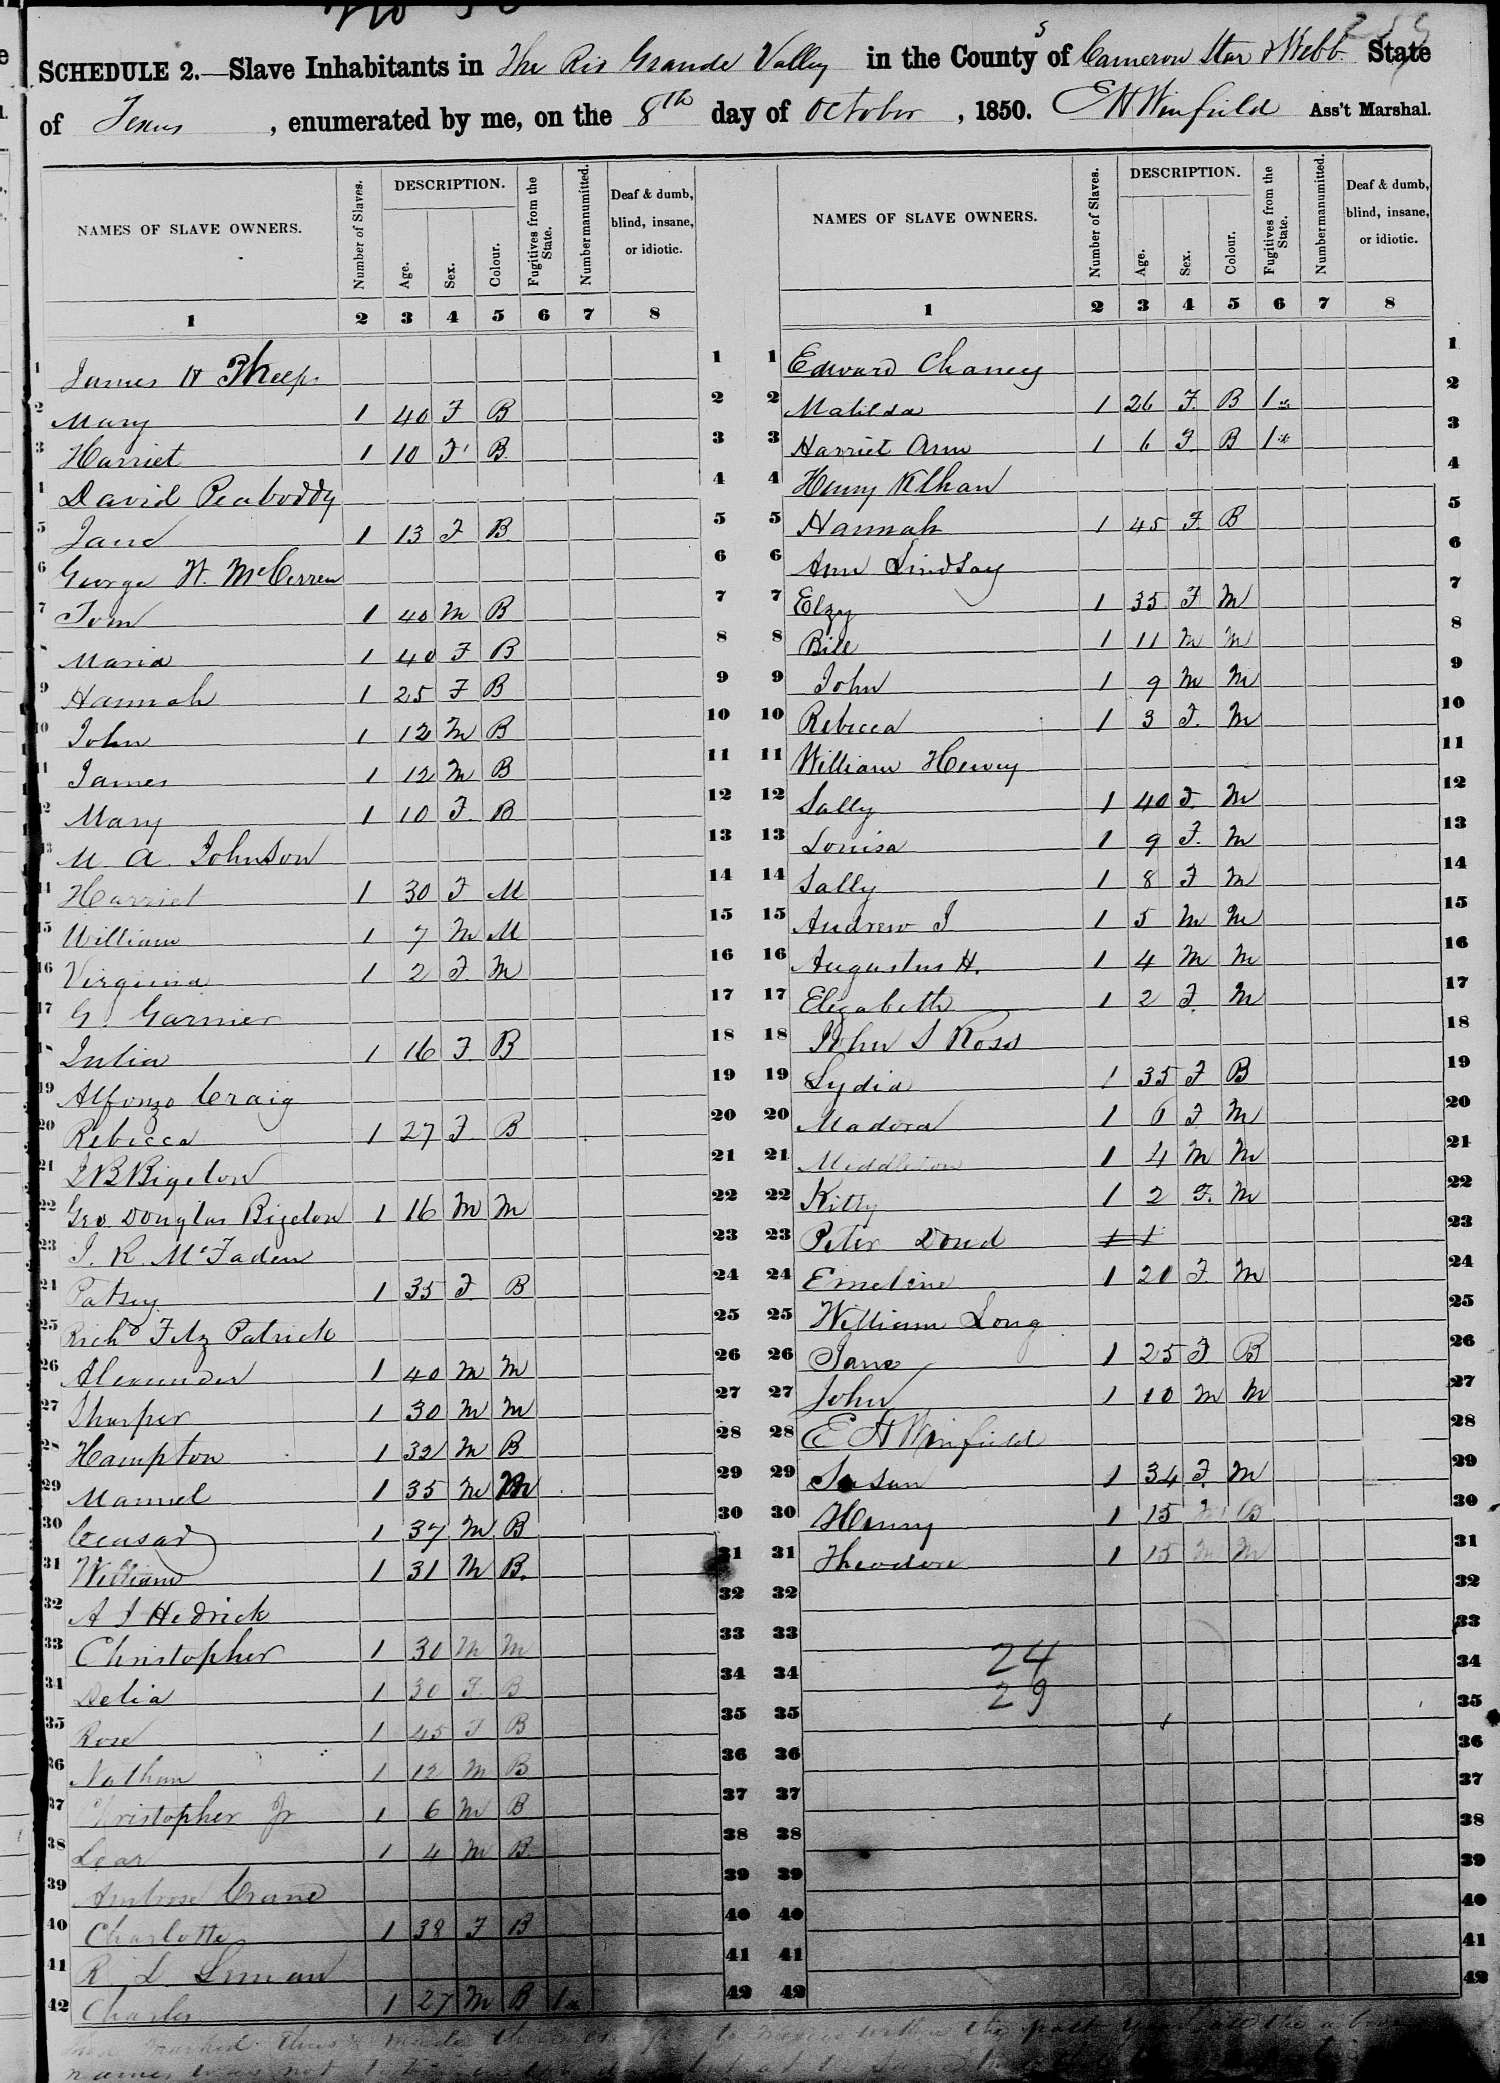 SCHEDULE 2.—Slave Inhabitants in The Rio Grande Valley in the County's of Cameron Star & Webb State
of Texas, enumerated by me, on the 8th day of October, 1850. E H Winfield Ass't Marshal.
NAMES OF SLAVE OWNERS. Number of Slaves. DESCRIPTION. Age. Sex. Colour. Fugitives from the State. Number manumitted. Deaf & dumb, blind, insane, or idiotic.
1 2 3 4 5 6 7 8
1 James H Phelps 1
2 Mary 1 40 F B 2
3 Harriet 1 10 F B. 3
1 David Peaboddy 4
5 Jane 1 13 F B 5
6 George W. McCerren 6
7 Tom 1 40 M B 7
8 Maria 1 40 F B 8
9 Hannah 1 25 F B 9
10 John 1 12 M B 10
11 James 1 12 M B 11
12 Mary 1 10 F B 12
13 M A. Johnson 13
14 Harriet 1 30 F M 14
15 William 1 7 M M 15
16 Virginia 1 2 F M 16
17 G. Garnier 17
18 Julia 1 16 F B 18
19 Alfonzo Craig 19
20 Rebecca 1 27 F B 20
21 J B Bigelow 21
22 Geo Douglas Bigelow 1 16 M M 22
23 J. R. McFaden 23
24 Patsey 1 35 F B 24
25 Richd Fitz Patrick 25
26 Alexander 1 40 M M 26
27 Sharper 1 30 M M 27
28 Hampton 1 32 M B 28
29 Manuel 1 35 M M 29
30 Ceasar 1 37 M B 30
31 William 1 31 M B. 31
32 A J Hedrick 32
33 Christopher 1 30 M M 33
34 Delia 1 30 F B 34
35 Rose 1 45 F B 35
36 Nathan 1 12 M B 36
37 Christopher Jr 1 6 M B 37
38 Lear 1 4 M B 38
39 Ambrose Crane 39
40 Charlotte 1 38 F B 40
41 R. L. 41
42 Charles 1 27 M B 1 42
NAMES OF SLAVE OWNERS. Number of Slaves. DESCRIPTION. Age. Sex. Colour. Fugitives from the State. Number manumitted. Deaf & dumb, blind, insane, or idiotic.
1 2 3 4 5 6 7 8
1 Edward Chaney 1
2 Matilda 1 26 F. B 1* 2
3 Harriet Ann 1 6 F. B 1* 3
4 Henry Klhan 4
5 Hannah 1 45 F. B 5
6 Ann Lindsay 6
7 Elzy 1 35 F M 7
8 Bill 1 11 M M 8
9 John 1 9 M M 9
10 Rebecca 1 3 F. M 10
11 William Hervey 11
12 Sally 1 40 F. M 12
13 Louisa 1 9 F. M 13
14 Sally 1 8 F M 14
15 Andrew J 1 5 M M 15
16 Augustus H. 1 4 M M 16
17 Elizabeth 1 2 F. M 17
18 John S Ross 18
19 Lydia 1 35 F B 19
20 Madora 1 6 F M 20
21 Middleton 1 4 M M 21
22 Kitty 1 2 F. M 22
23 Peter Doud 1 1 23
24 Emeline 1 20 F. M 24
25 William Long 25
26 Jane 1 25 F B 26
27 John 1 10 M M 27
28 E H Winfield 28
29 Susan 1 34 F. M 29
30 Henry 1 15 M B 30
31 Theodore 1 15 M M 31
32 32
33 33
34 24 34
35 29 35
36 36
37 37
38 38
39 39
40 40
41 41
42 42
marked thus made their to Mexico within the past year all the above
names was not